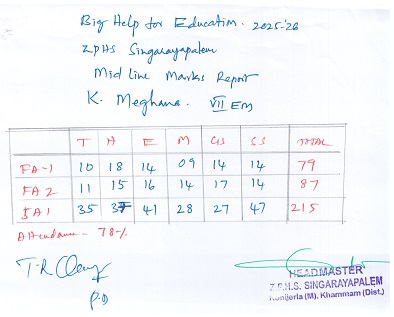 Big Help for Education. 2025-26
ZPHS Singarayapalem
Mid Line Marks Report
K. Meghana. VII EM
T H E M GS SS TOTAL
FA-1 10 18 14 09 14 14 79
FA2 11 15 16 14 17 14 87
SA1 35 37 41 28 27 47 215
Attendance - 78%
P.D
HEADMASTER
Z.P.H.S. SINGARAYAPALEM
Konijerla (M). Khammam (Dist.)